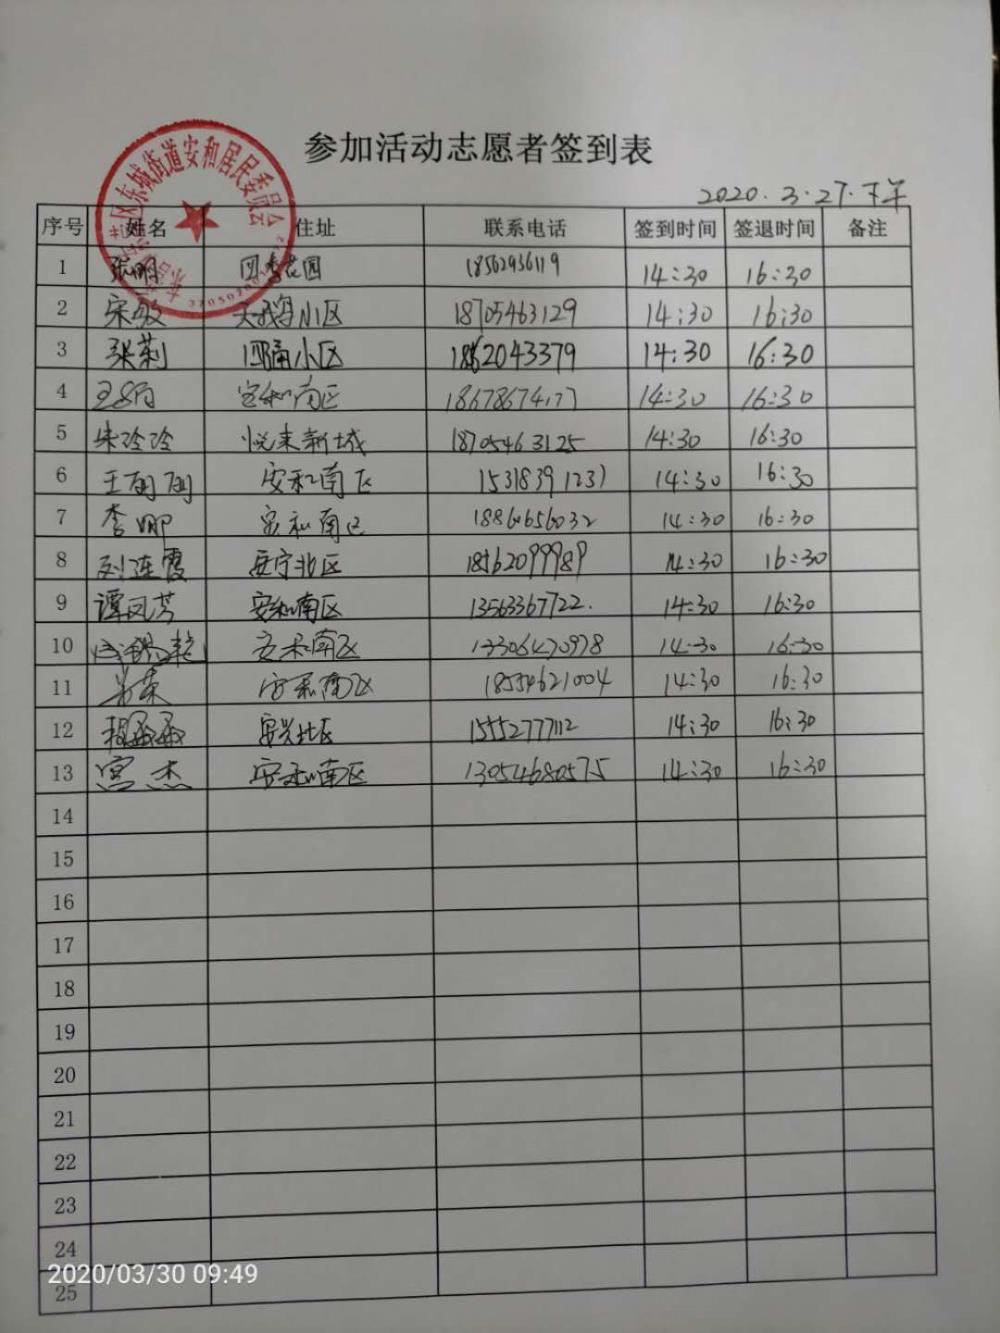 参加活动志愿者签到表
2020.3.27.下午
东城街道安和居民委员会
序号 姓名 住址 联系电话 签到时间 签退时间 备注
1 张明 四季花园 18562936119 14:30 16:30
2 宋敏 天鹅小区 18705463129 14:30 16:30
3 张莉 小区 14:30 16:30
4 安和南区 14:30 16:30
5 朱玲玲 悦来新城 18705463125 14:30 16:30
6 王丽丽 安和南区 15318391231 14:30 16:30
7 李娜 安和南区 14:30 16:30
8 刘连霞 安宁北区 18562099989 14:30 16:30
9 谭凤芳 安和南区 13563367722. 14:30 16:30
10 安和南区 14:30 16:30
11 安和南区 18554621004 14:30 16:30
12 程 安兴北区 15552777112 14:30 16:30
13 宫杰 安和南区 13054680575 14:30 16:30
14
15
16
17
18
19
20
21
22
23
24
2020/03/30 09:49
25